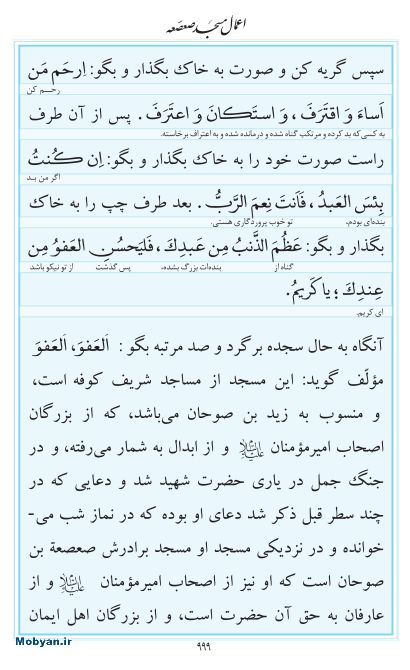 اعمال مسجد صعصعه
سپس گریه کن و صورت به خاک بگذار و بگو: اِرحَم مَن
رحـــم کن
اَساءَ وَ اقتَرَفَ، وَ استَکانَ وَ اعتَرَفَ. پس از آن طرف
به کسی‌که بد کرده و مرتکب گناه شده و درمانده شده و به اعتراف برخاسته.
راست صورت خود را به خاک بگذار و بگو: اِن کُنتُ
اگر من بــد
بِئسَ العَبدُ، فَاَنتَ نِعمَ الرَّبُّ. بعد طرف چپ را به خاک
بنده‌ای بودم، تو خوب پروردگاری هستی.
بگذار و بگو: عَظُمَ الذَّنبُ مِن عَبدِكَ، فَلیَحسُنِ العَفوُ مِن
گناه از بنده‌ات بزرگ بشده، پس گذشت از تو نیکو باشد
عِندِكَ؛ یا کَریمُ.
ای کریم.
آنگاه به حال سجده برگرد و صد مرتبه بگو: اَلعَفوَ، اَلعَفوَ
مؤلّف گوید: این مسجد از مساجد شریف کوفه است،
و منسوب به زید بن صوحان می‌باشد، که از بزرگان
اصحاب امیرمؤمنان علیه‌السلام و از ابدال به شمار می‌رفته، و در
جنگ جمل در یاری حضرت شهید شد و دعایی که در
چند سطر قبل ذکر شد دعای او بوده که در نماز شب می-
خوانده و در نزدیکی مسجد او مسجد برادرش صعصعة بن
صوحان است که او نیز از اصحاب امیرمؤمنان علیه‌السلام و از
عارفان به حق آن حضرت است، و از بزرگان اهل ایمان
۹۹۹
Mobyan.ir